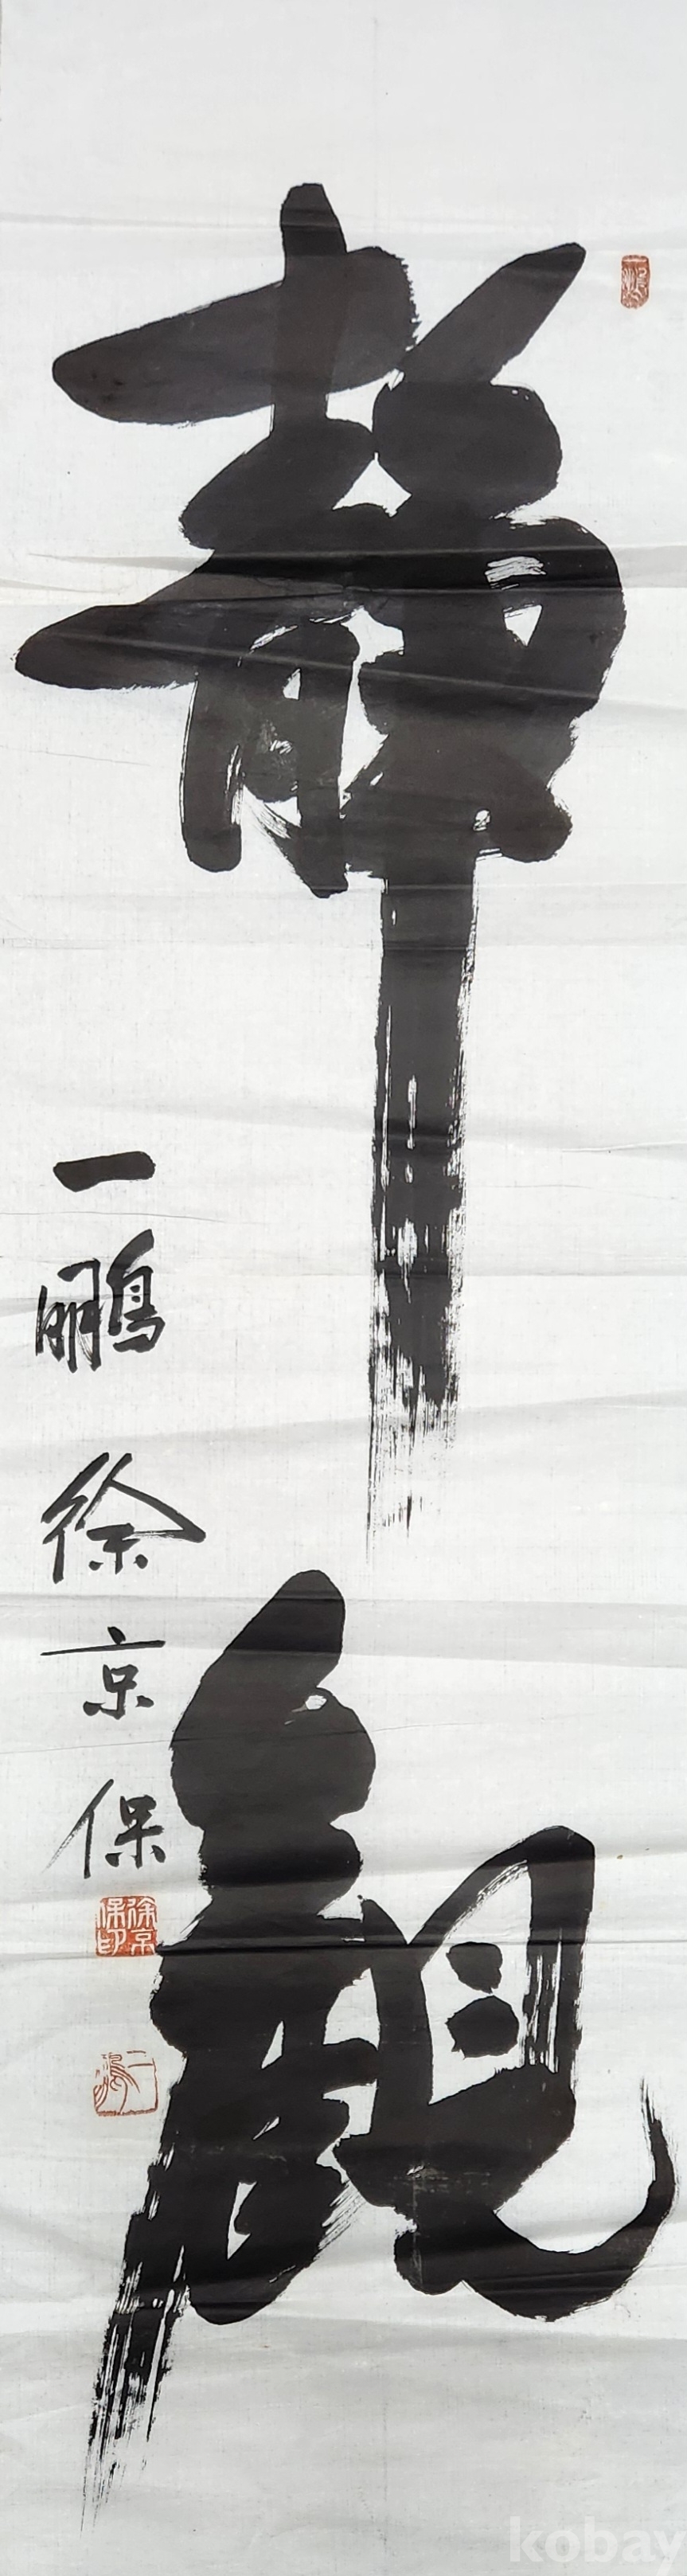 静觀
一鵬徐京保
徐京保印
一鵬
kobay